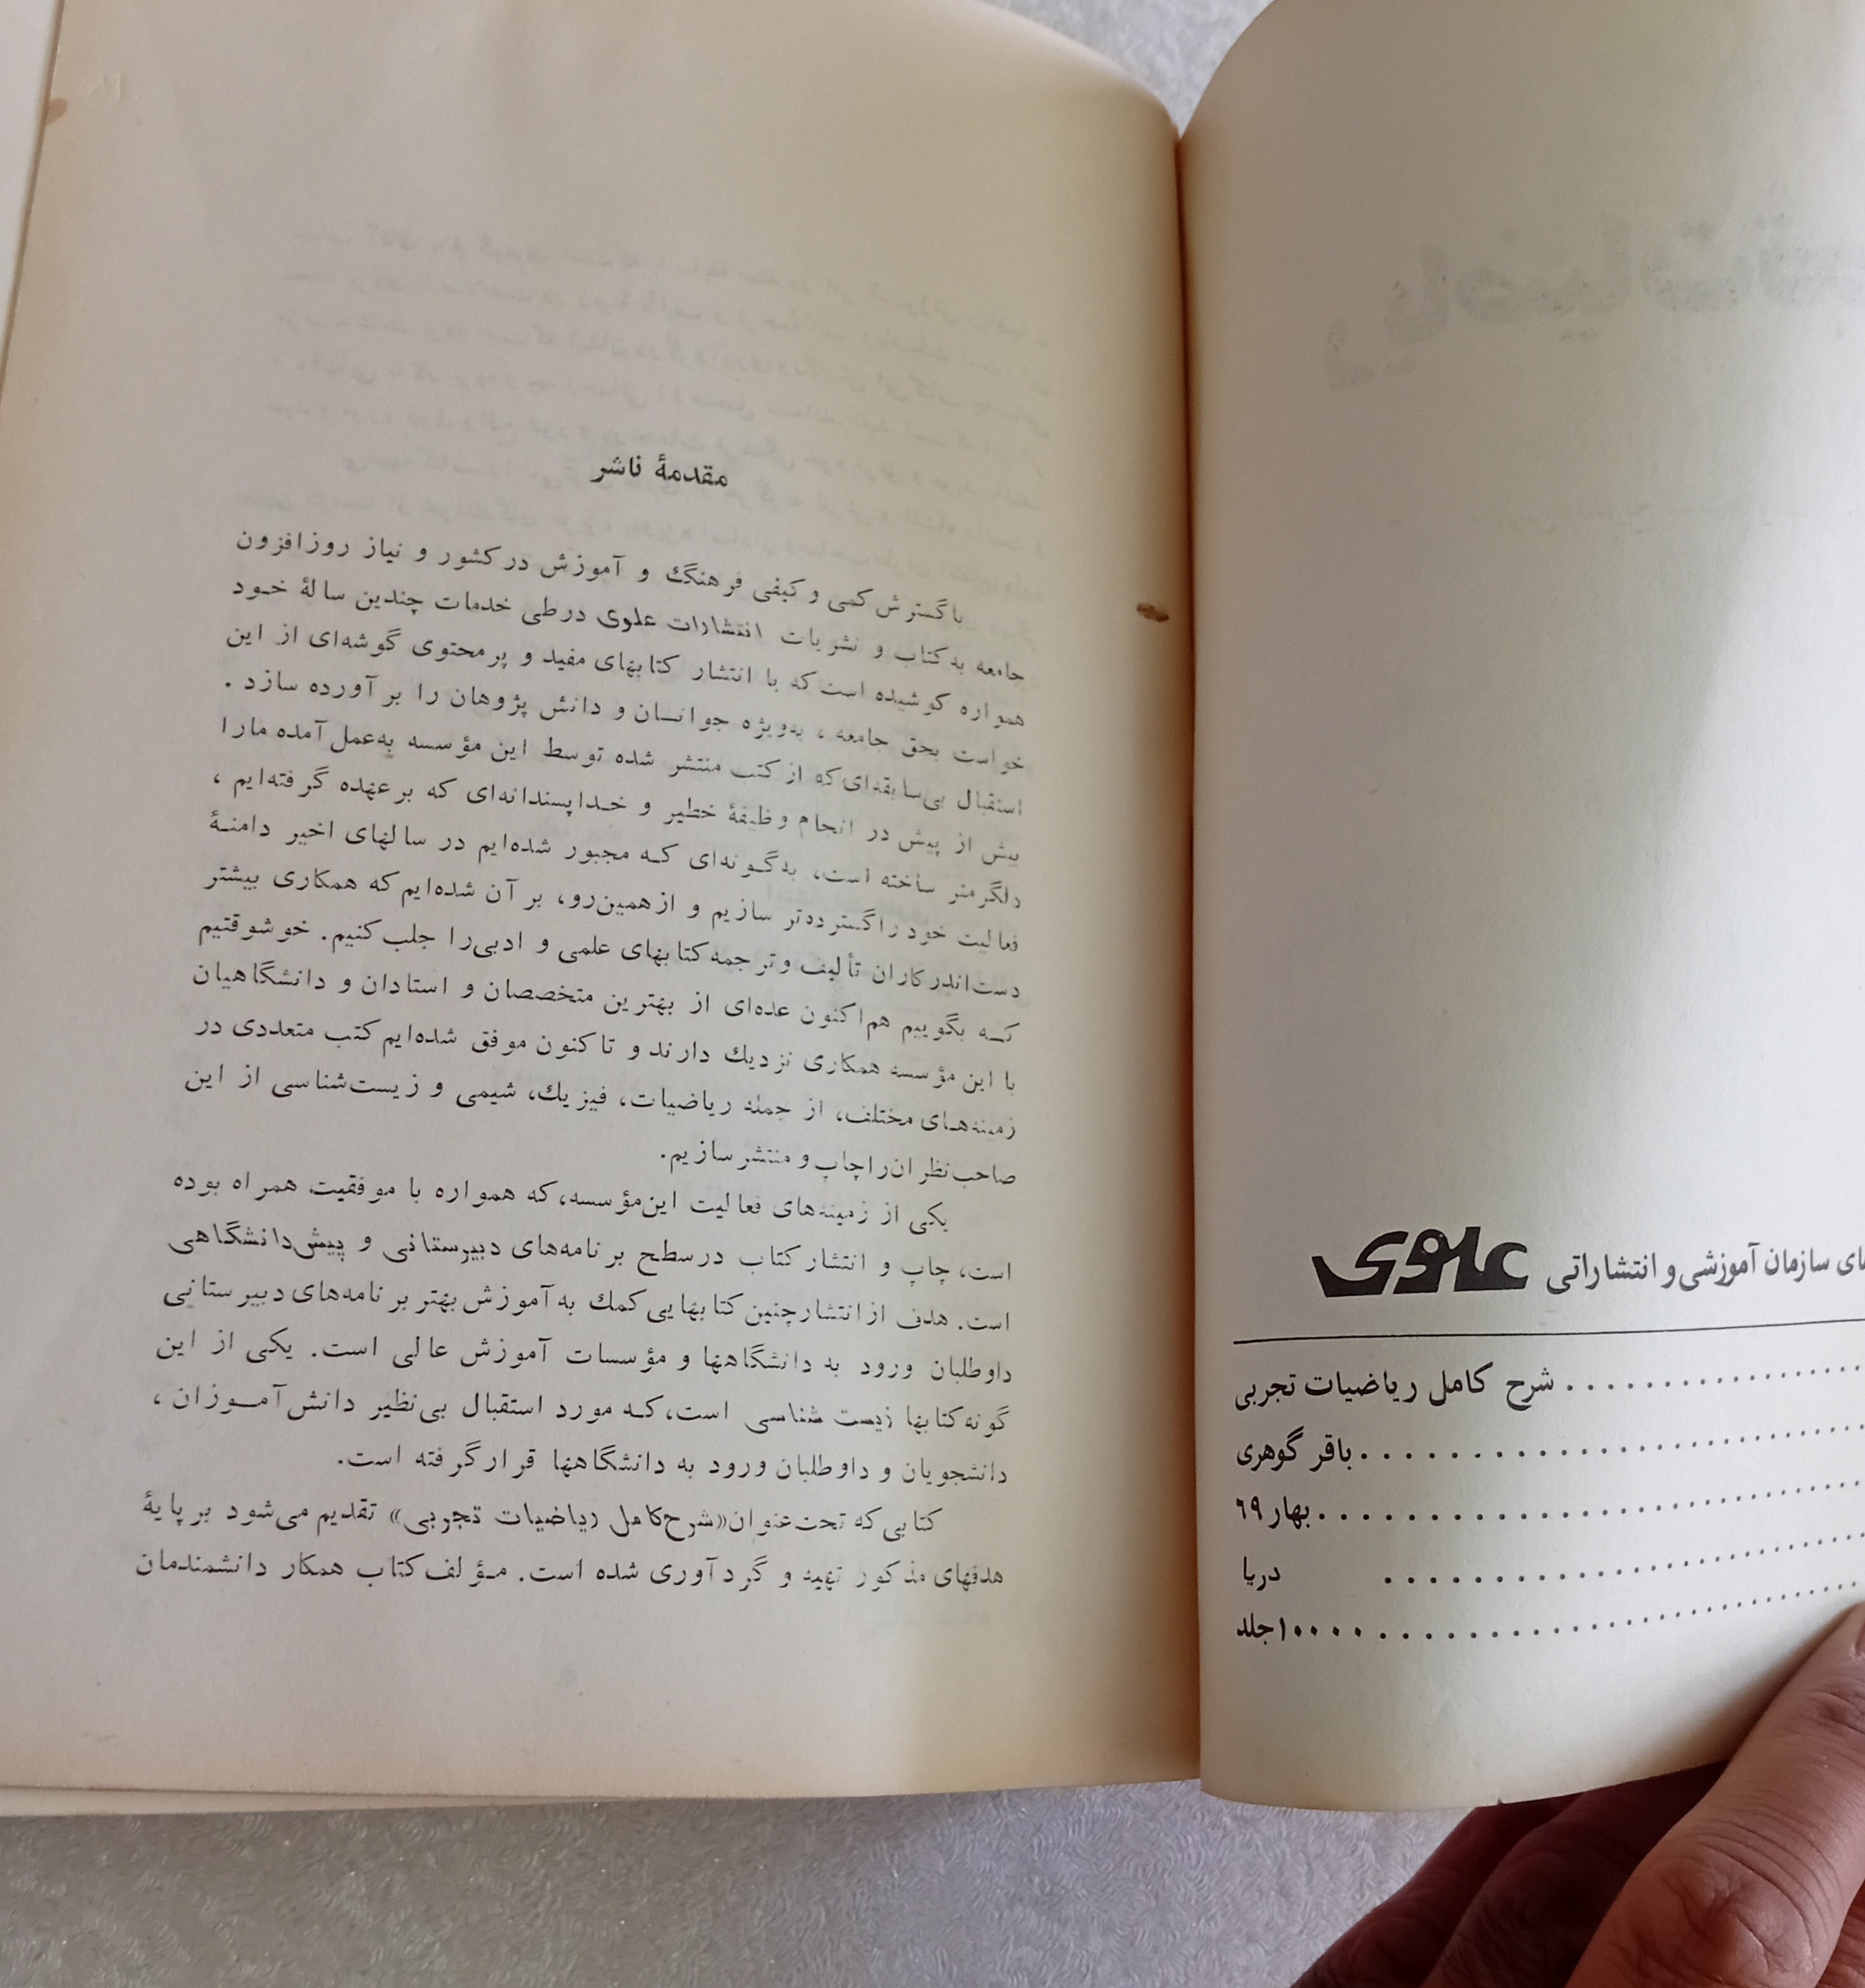 های سازمان آموزشی و انتشاراتی علوی
شرح کامل ریاضیات تجربی
باقر گوهری
بهار ۶۹
دریا
۱۰۰۰۰ جلد
مقدمهٔ ناشر
باگسترش کمی و کیفی فرهنگ و آموزش در کشور و نیاز روزافزون
جامعه به کتاب و نشریات انتشارات علوی درطی خدمات چندین سالهٔ خود
همواره کوشیده است که با انتشار کتابهای مفید و پرمحتوی گوشه‌ای از این
خواست بحق جامعه ، به‌ویژه جوانان و دانش پژوهان را برآورده سازد .
استقبال بی‌سابقه‌ای که از کتب منتشر شده توسط این مؤسسه به‌عمل آمده مارا
بیش از پیش در انجام وظیفهٔ خطیر و خداپسندانه‌ای که برعهده گرفته‌ایم ،
دلگرمتر ساخته است، به‌گونه‌ای که مجبور شده‌ایم در سالهای اخیر دامنهٔ
فعالیت خود را گسترده‌تر سازیم و ازهمین‌رو، بر آن شده‌ایم که همکاری بیشتر
دست‌اندرکاران تألیف و ترجمه کتابهای علمی و ادبی را جلب کنیم. خوشوقتیم
که بگوییم هم‌اکنون عده‌ای از بهترین متخصصان و استادان و دانشگاهیان
با این مؤسسه همکاری نزدیك دارند و تاکنون موفق شده‌ایم کتب متعددی در
زمینه‌های مختلف، از جمله ریاضیات، فیزیك، شیمی و زیست‌شناسی از این
صاحب‌نظران را چاپ و منتشر سازیم.
یکی از زمینه‌های فعالیت این‌مؤسسه، که همواره با موفقیت همراه بوده
است، چاپ و انتشار کتاب درسطح برنامه‌های دبیرستانی و پیش‌دانشگاهی
است. هدف از انتشارچنین کتابهایی کمك به آموزش بهتر برنامه‌های دبیرستانی
داوطلبان ورود به دانشگاهها و مؤسسات آموزش عالی است. یکی از این
گونه کتابها زیست شناسی است، که مورد استقبال بی‌نظیر دانش‌آموزان ،
دانشجویان و داوطلبان ورود به دانشگاهها قرارگرفته است.
کتابی که تحت‌عنوان «شرح‌کامل ریاضیات تجربی» تقدیم می‌شود بر پایهٔ
هدفهای مذکور تهیه و گردآوری شده است. مؤلف کتاب همکار دانشمندمان